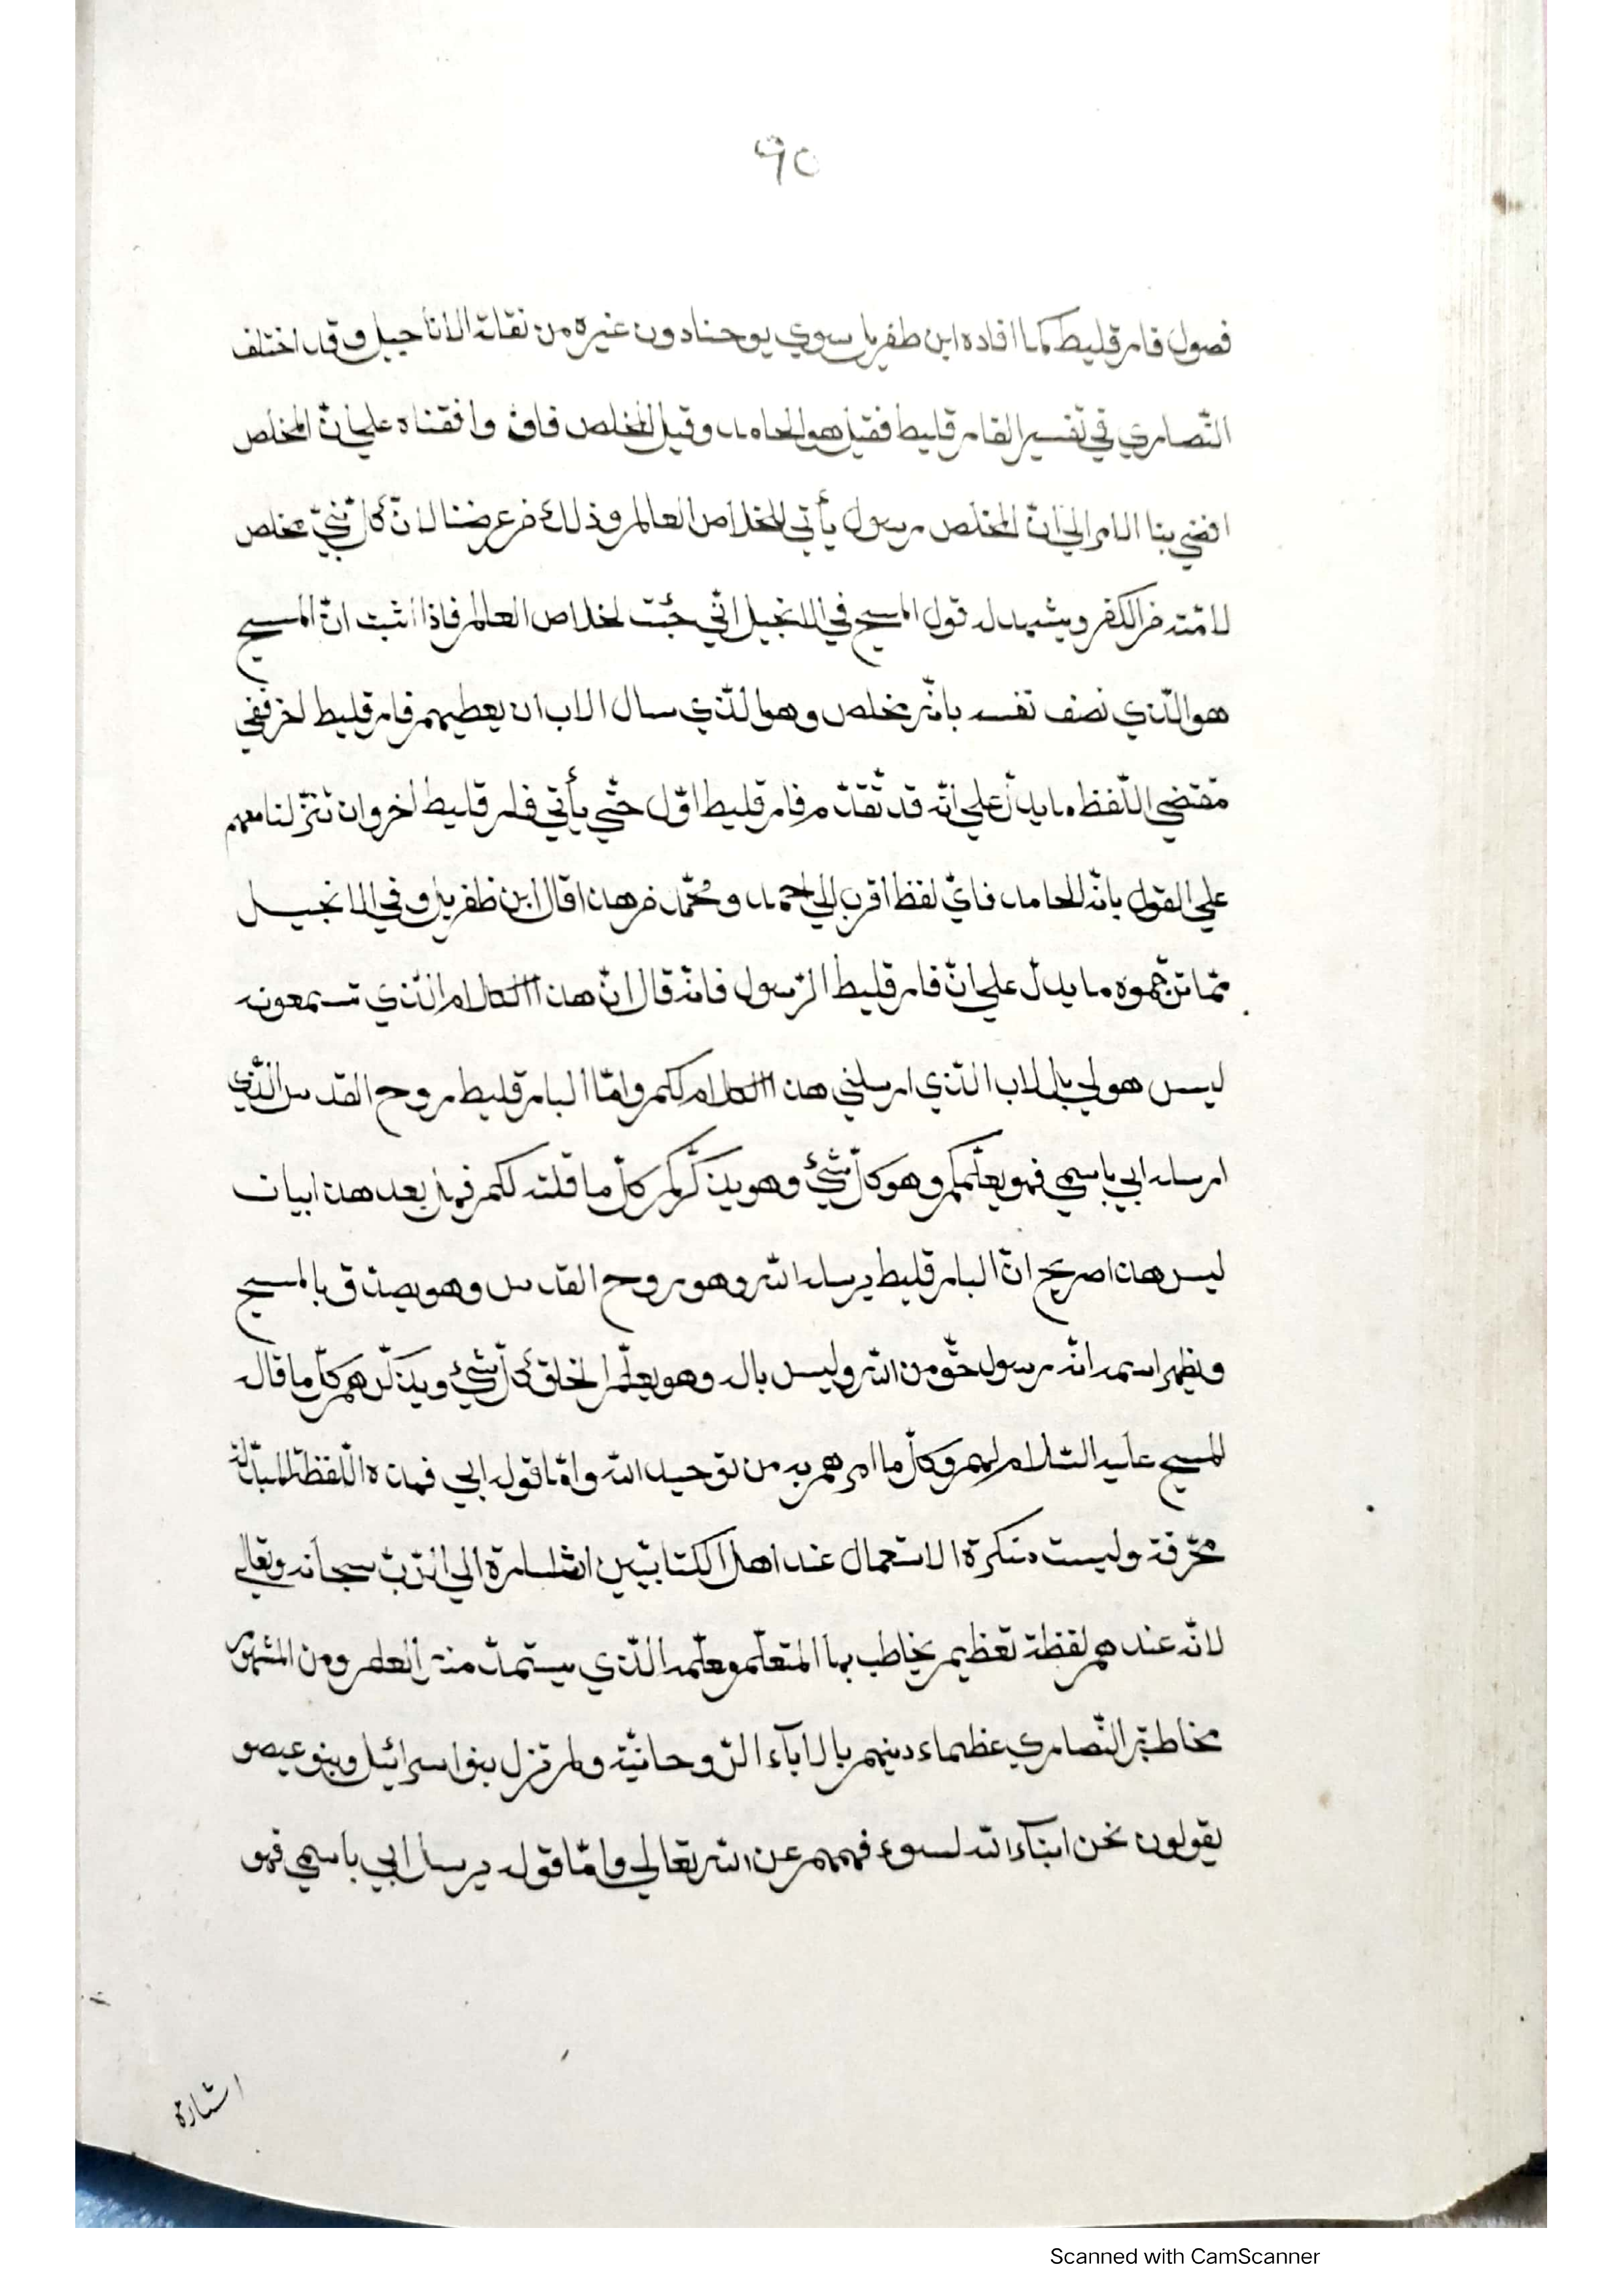 ٩٥
فصول فارقليط كما افاده ابن ظفر بل سوي يوحنا دون غيره من نقلة الاناجيل وقد اختلف
النّصاري في تفسير الفارقليط فقيل هو الحامد وقيل المخلص فان وافقناه علي انّ المخلص
افضي بنا الامر الي انّ المخلص رسول يأتي لخلاص العالم وذلك من عرضنا لانّ كل نبيّ مخلص
لامّته من الكفر ويشهد له قول المسيح في الانجيل انّي جئت لخلاص العالم فاذا اثبت انّ المسيح
هو الّذي نصف نفسه بانّه مخلص وهو الّذي سال الاب ان يعطيهم فارقليط اخر ففي
مقتضي اللّفظ ما يدلّ علي انّه قد تقدّم فارقليط اوّل حتّي يأتي فارقليط اخر وان تنزّلنا معهم
علي القول بانّه الحامد فايّ لفظ اقرب الي احمد ومحمّد من هذا قال ابن ظفر بل وفي الانجيل
ممّا ترجموه ما يدلّ علي انّ فارقليط الرّسول فانّه قال انّ هذا الكلام الّذي تسمعونه
ليس هو لي بل للاب الّذي ارسلني هذا الكلام لكم وامّا البارقليط روح القدس الّذي
ارسله ابي باسمي فهو يعلّمكم وهو كلّ شئ وهو يذكّركم كلّ ما قلته لكم فهل بعد هذا بيان
ليس هذا صريح انّ البارقليط يرسله اللّه وهو روح القدس وهو يصدّق بالمسيح
ويظهر اسمه انّه رسول حقّ من اللّه وليس باله وهو يعلّم الخلق كلّ شئ ويذكّرهم كلّ ما قال
المسيح عليه السّلام لهم وكلّ ما امرهم به من توحيد اللّه وامّا قوله ابي فهذه اللّفظة المبدّلة
محرّفة وليست منكرة الاستعمال عند اهل الكتابين اشارة الي الرّبّ سبحانه وتعالي
لانّه عندهم لفظة تعظيم يخاطب بها المتعلّم ومعلّمه الّذي يستمدّ منه العلم ومن المشهور
مخاطبة النّصاري عظماء دينهم بالاباء الرّوحانيّة ولم تزل بنوا اسرائيل وبنو عيصو
يقولون نحن ابناء اللّه لسوء فهمهم عن اللّه تعالي وامّا قوله يرسل ابي باسمي فهو
اشارة
Scanned with CamScanner